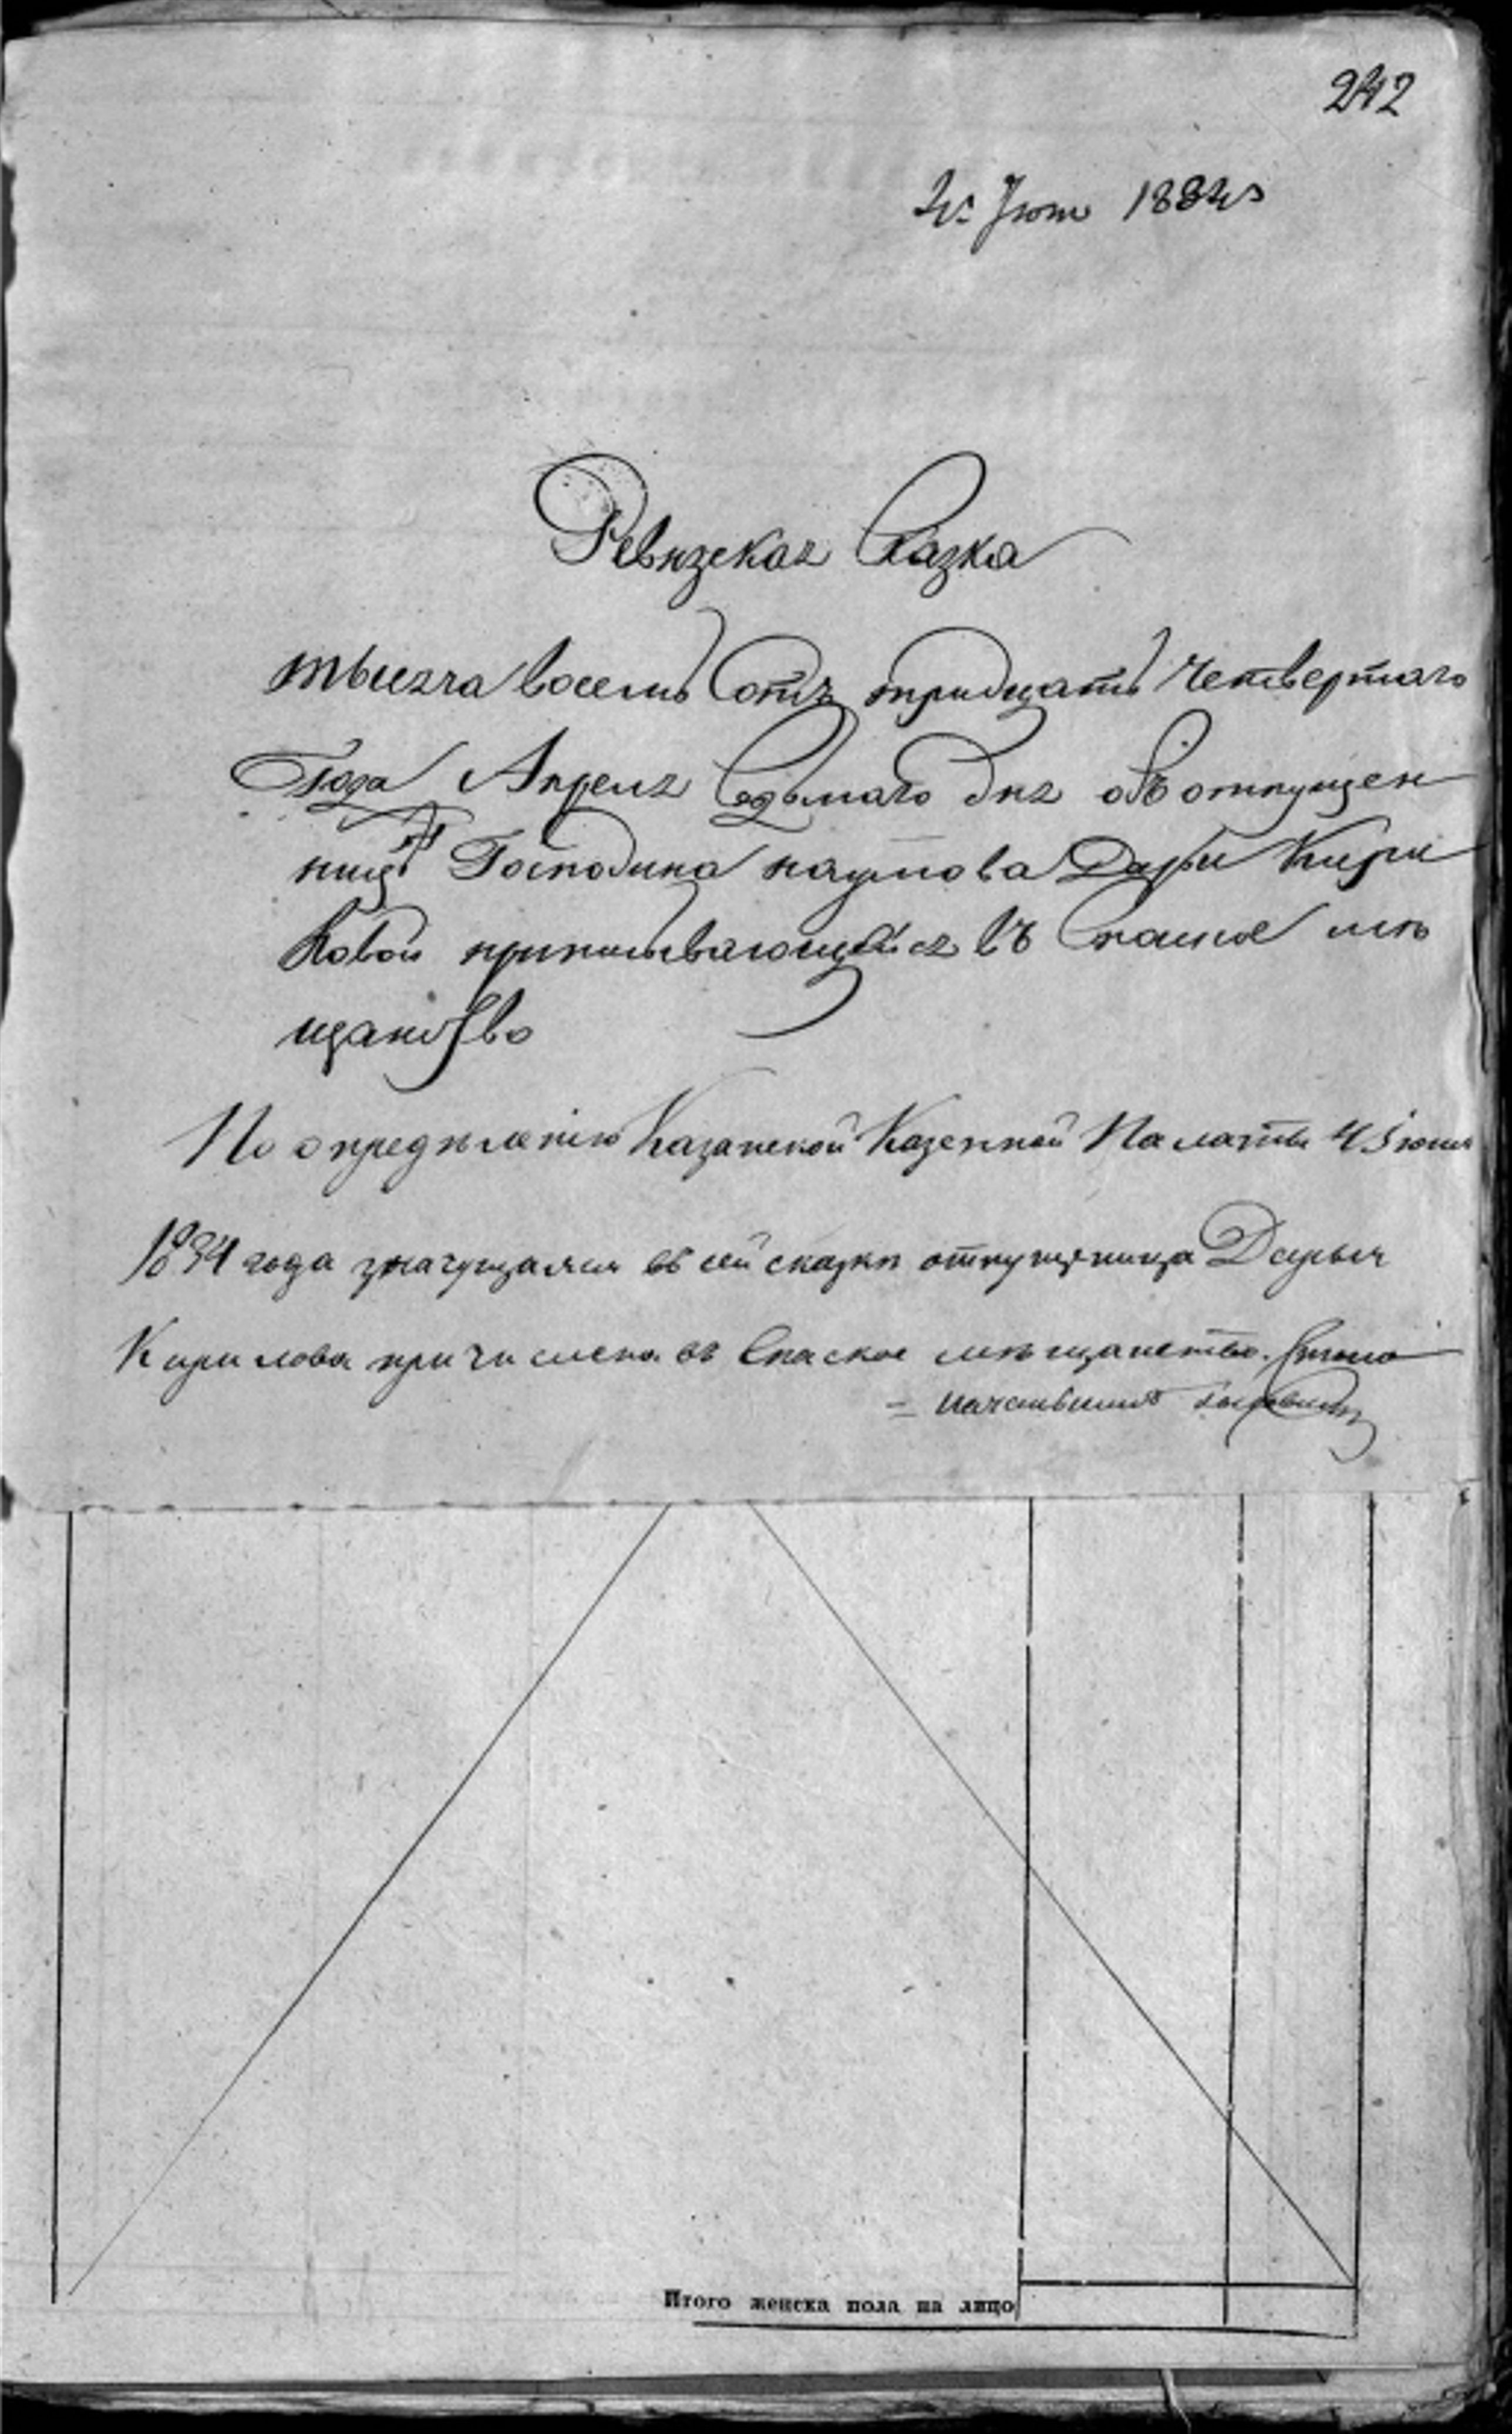 242
4го Июня 1834го
Ревизская Сказка
тысяча восемь Сотъ тридцать четвертаго
Года Апреля Седьмаго дня объ отпущен
ницѣ Господина наумова Дарьи Кири
ловой приписывающейся въ Спаское мѣ
щанство
По определенію Казанской Казенной Палаты 4 Іюня
1834 года значущаяся въ сей сказкѣ отпущеница Дарья
Кирилова причислена въ Спаское мѣщанство. Столо
= начальникъ
Итого женска пола на лицо